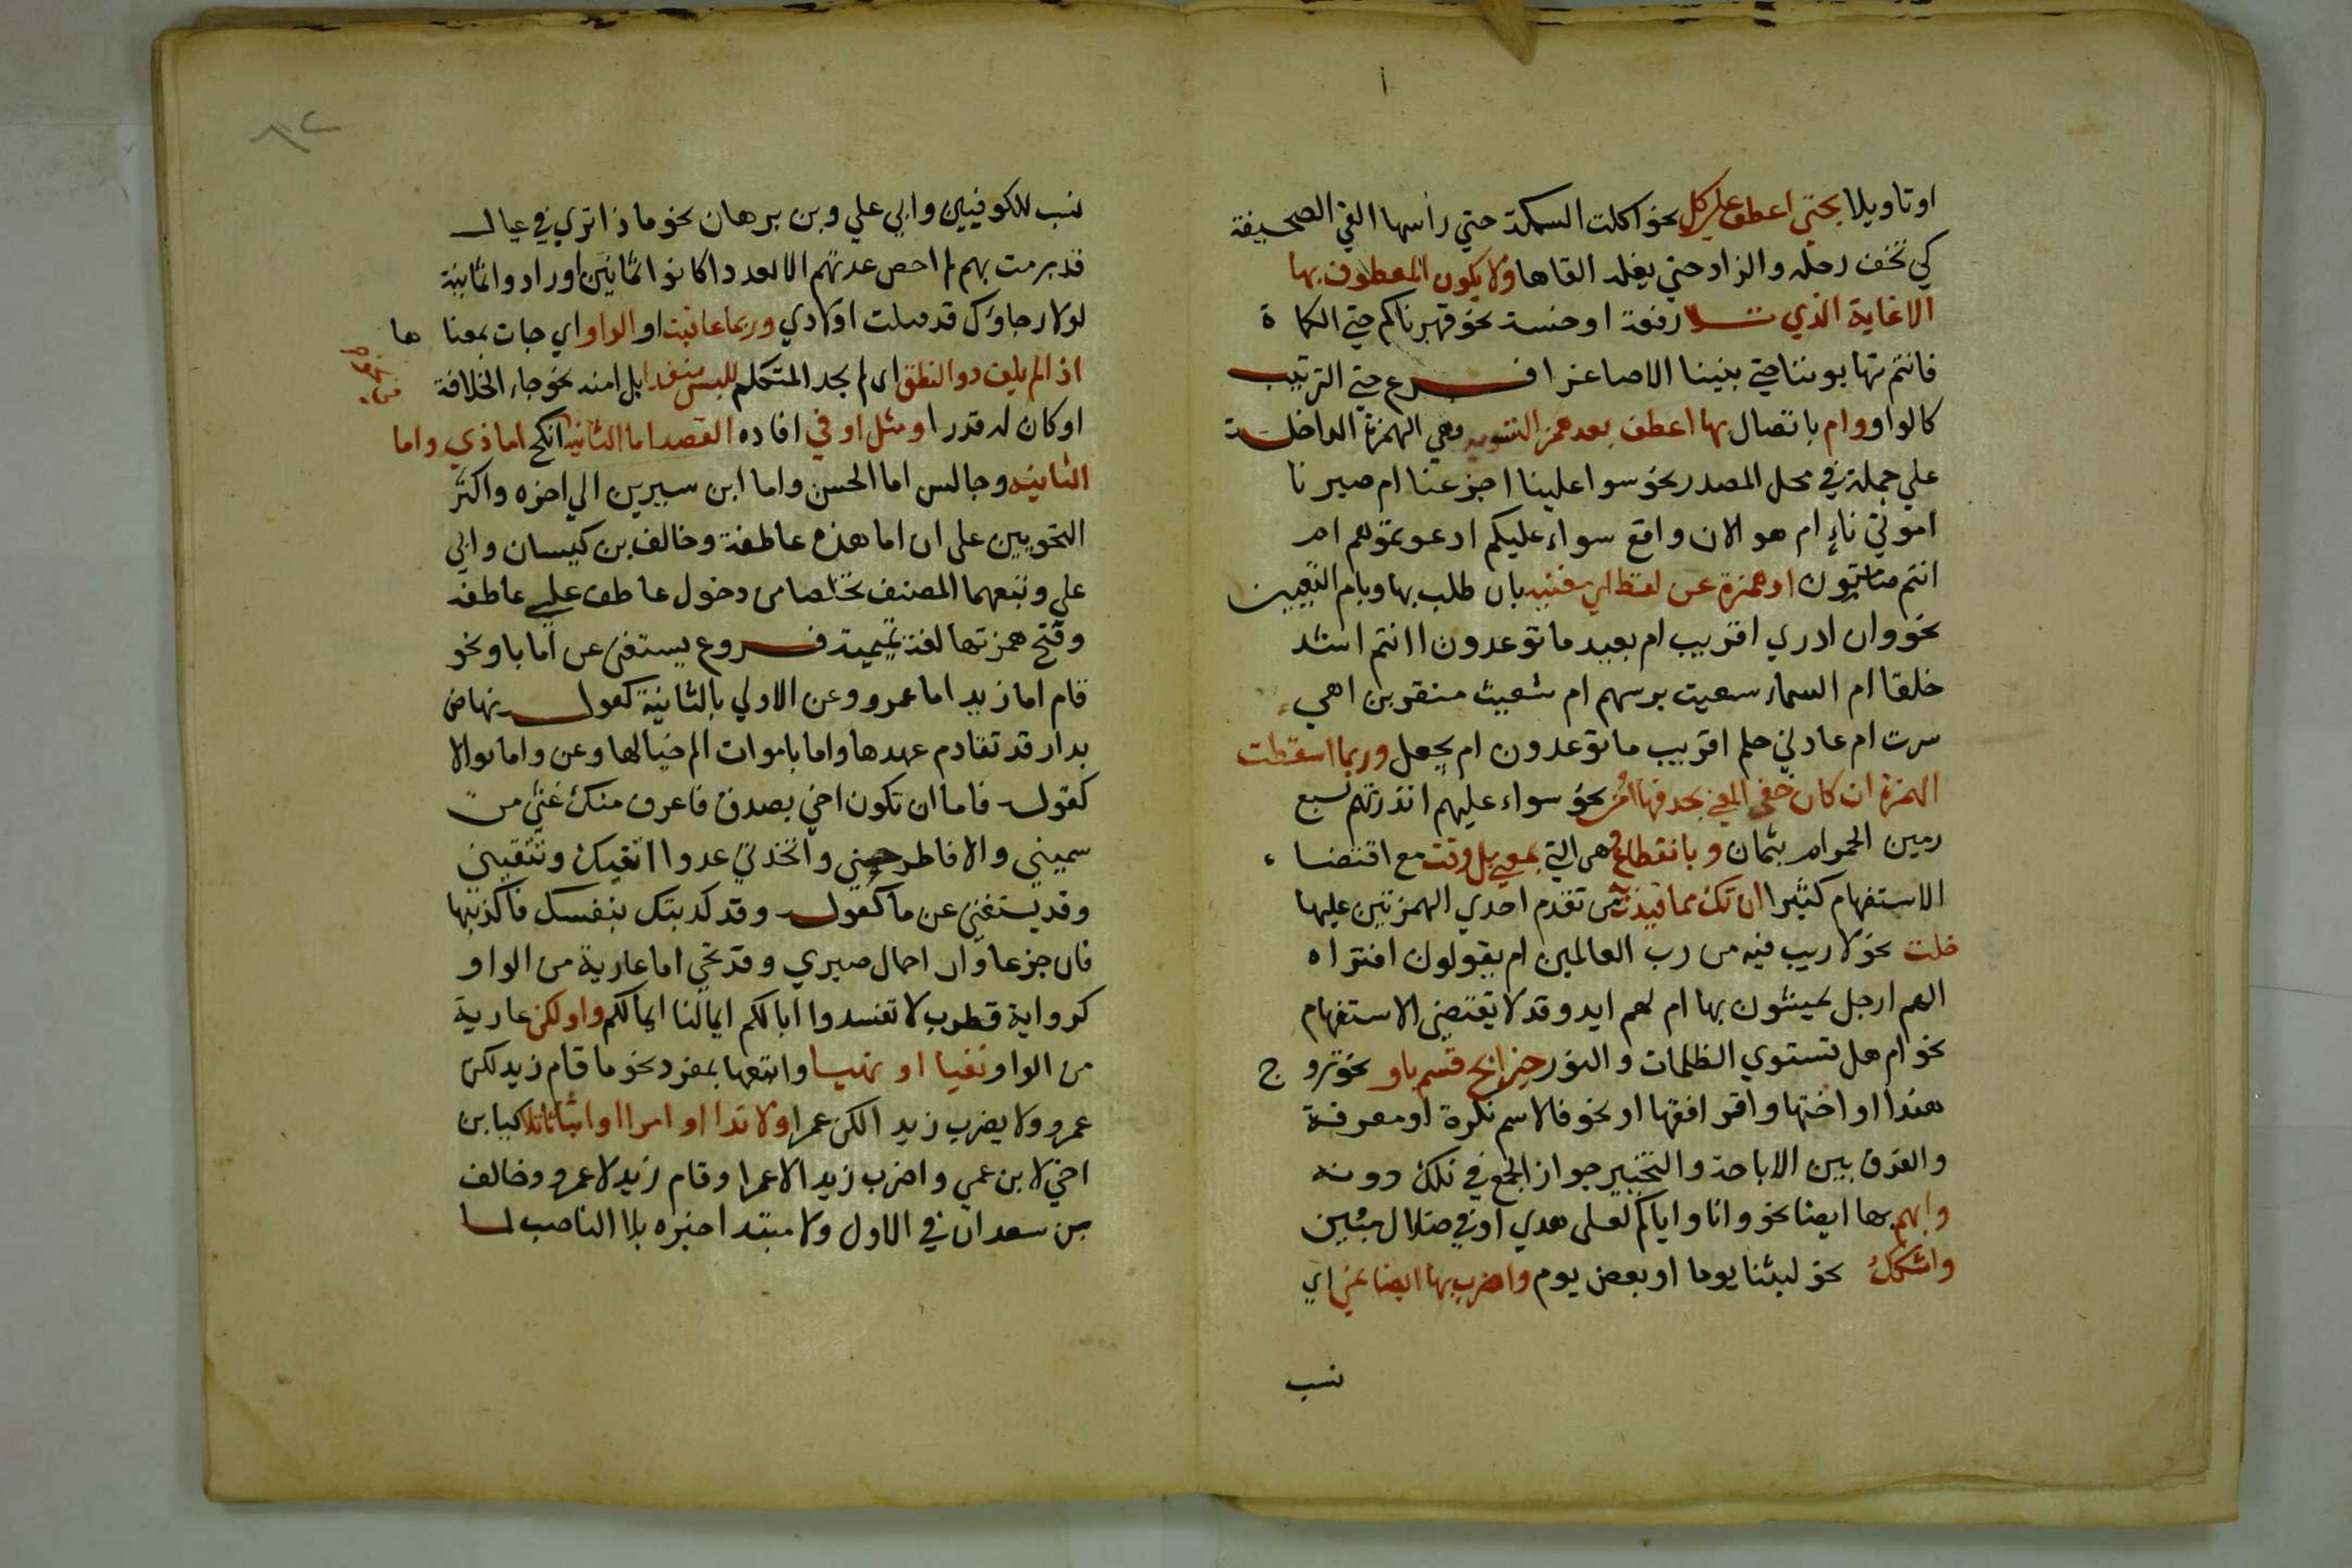 او تاويلا بحتي اعطف علي كل نحو اكلت السمكة حتي رأسها القي الصحيفة
كي تخفف رحله والزاد حتي نعله القاها ولا يكون المعطوف بها
الا غاية الذي تلا رفعة او خسة نحو قهرناكم حتي الكماة
فانتم تهابوننا حتي بنينا الاصاغرا فرع حتي الترتيب
كالواو وام باتصال بها اعطف بعد همز التسويه وهي الهمزة الداخلة
علي جملة في محل المصدر نحو سوا علينا اجزعنا ام صبرنا
اموتي ناءٍ ام هو الان واقع سواء عليكم ادعوتموهم ام
انتم صامتون او همزة عن لفظ اي مغنيه بان طلب بها وبام التعيين
نحو وان ادري اقريب ام بعيد ما توعدون اانتم اشد
خلقا ام السماء شعيث بن سهم ام شعيث منقر بن اهي
سرت ام عادني حلم اقريب ما توعدون ام يجعل وربما اسقطت
الهمزة ان كان خفي المعني بحذفها امن نحو سواء عليهم انذرتهم بسبع
رمين الجمر ام بثمان وبانقطاع وهي التي بمعني بل وفت مع اقتضاء
الاستفهام كثيرا ان تك مما قيدت من تقدم احدي الهمزتين عليها
خلت نحو لا ريب فيه من رب العالمين ام يقولون افتراه
الهم ارجل يمشون بها ام لهم ايد وقد لا يقتضي الاستفهام
نحو ام هل تستوي الظلمات والنور خير ابح قسم باو نحو تزوج
هندا او اختها واقرا فقها او نحو فالاسم نكرة او معرفة
والفرق بين الاباحة والتخيير جواز الجمع في تلك دونه
وابهم بها ايضا نحو وانا واياكم لعلي هدي او في ضلال مبين
واشكك نحو لبثنا يوما او بعض يوم واضرب بها ايضا نمي اي
نسب
نسب للكوفيين وابي علي وبن برهان نحو ماذا تري في عيال
قد برمت بهم لم احص عدتهم الا بعداد كانوا ثمانين او زادوا ثمانية
لولا رجاوك قد قتلت اولادي وربما عاقبت او الواو اي جات بمعناها
اذا لم يلف ذو النطق اي لم يجد المتكلم للبس منفذا بل امنه نحو جاء الخلافة
او كان له قدرا ومثل او في افاده القصد اما الثانيه انكح اما ذي واما
الثانيه وجالس اما الحسن واما ابن سيرين الي اخره واكثر
النحويين علي ان اما هذه عاطفة وخالف بن كيسان وابي
علي وتبعهما المصنف تخلصا من دخول عاطف علي عاطف
وفتح همزتها لغة تميمية فروع يستغني عن اما باو نحو
قام اما زيد اما عمرو وعن الاولي بالثانية كقول تهاض
بدار قد تقادم عهدها واما باموات الم خيالها وعن واما بوالا
كقول فاما ان تكون اخي بصدق فاعرف منك غثي من
سميني والا فاطرحني واتخذني عدوا اتقيك وتتقيني
وقد يستغني عن ما كقول وقد كذبتك نفسك فاكذبنها
فان جزعا وان اجمال صبري وقد تجي اما عارية من الواو
كرواية قطرب لا تفسدوا ابالكم ايمالنا ايمالكم واول لكن عارية
من الواو نفيا او نهيا واتبعها بمفرد نحو ما قام زيد لكن
عمرو ولا يضرب زيد الكن عمرا ولا ندا او امرا او اثباتا تلا كيا بن
اخي لا بن عمي واضرب زيدا لا عمرا وقام زيد لا عمرو وخالف
بن سعدان في الاول ولا مبتدا خبره تلا الناصب لما